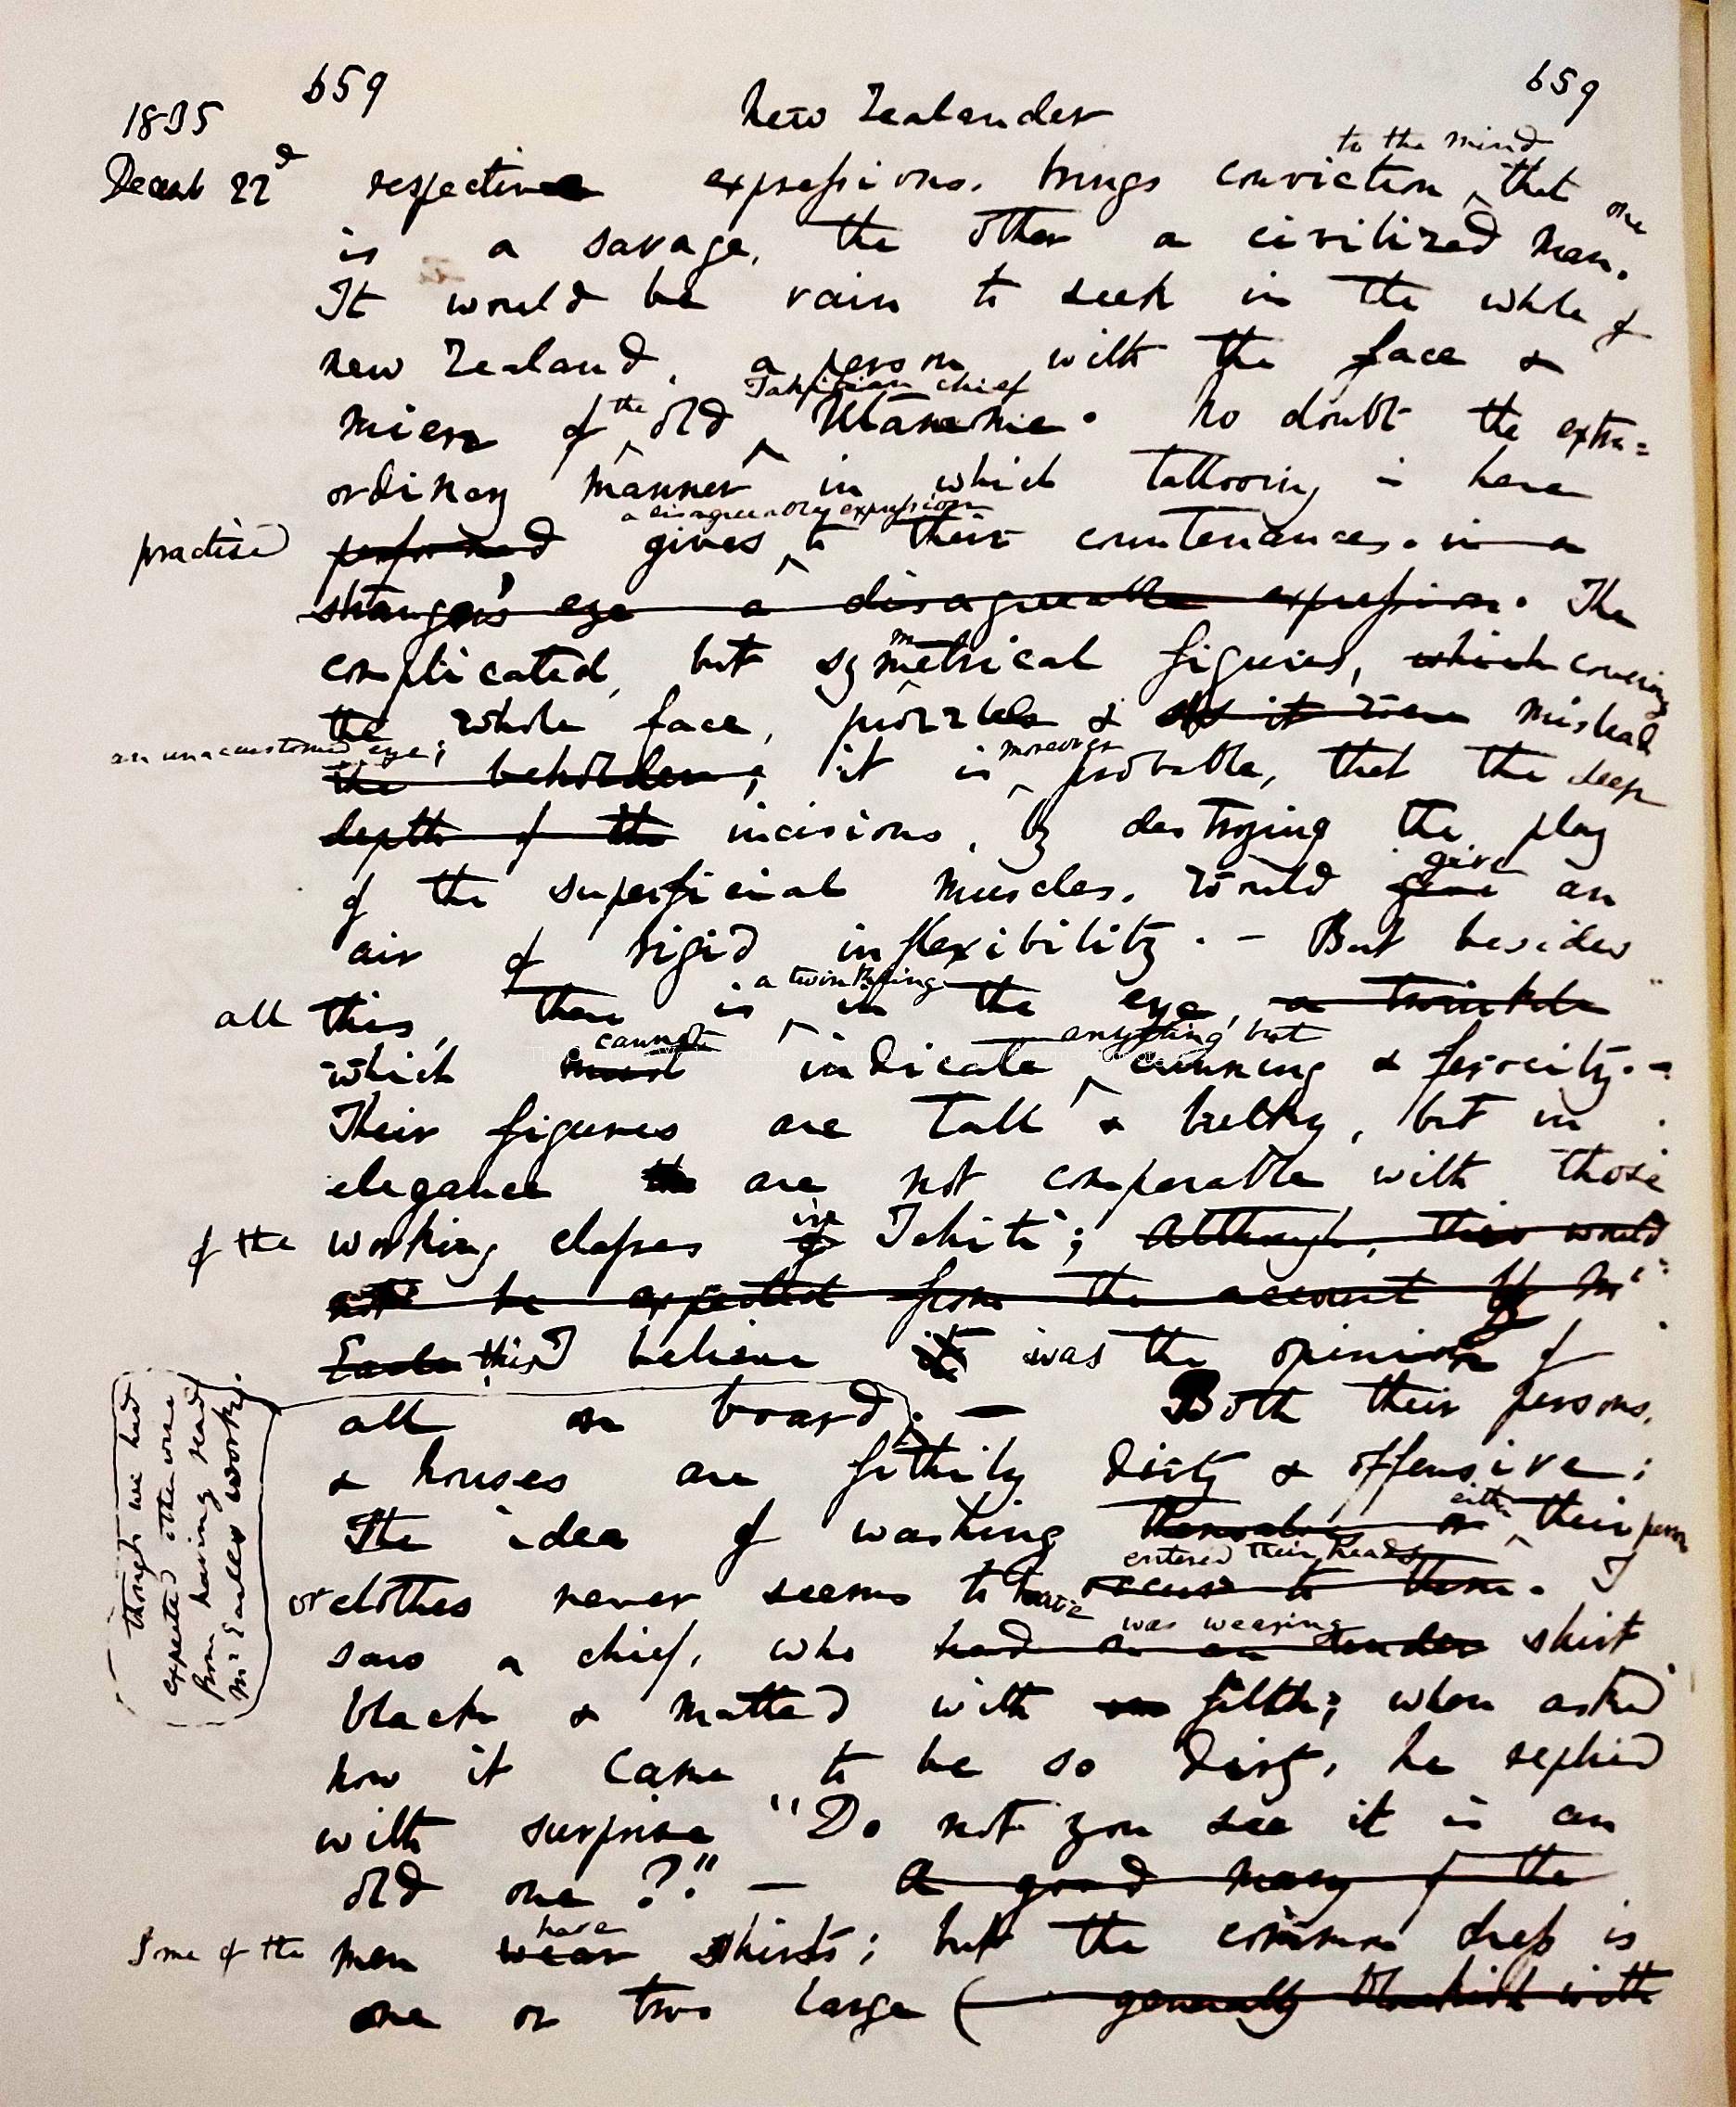 659 659
1835 New Zealander
to the mind
Decemb 22d respective expressions. brings conviction ^ that one
is a savage, the other a civilized man.
It would be vain to seek in the whole of
new Zealand, a person with the face &
Tahitian chief
mien of the old Utamme. No doubt the extra=
ordinary manner in which tattooing is here
a disagreeable expression
practised performed gives ^ to their countenances. in a
stranger's eye a disagreeable expression. The
complicated, but symmetrical figures, which covering
the whole face, puzzle & as it were mislead
an unaccustomed eye; moreover
the beholder; it is ^ probable, that the deep
depth of the incisions, by destroying the play
give
of the superficial muscles, would give an
air of rigid inflexibility. - But besides
a twinkling
all this, there is ^ in the eye, a twinkle
cannot anything but
which must indicate ^ cunning & ferocity. -
Their figures are tall & bulky, but in
elegance the are not comparable with those
in
of the working classes of Tahiti; Although, this would
not be expected from the account of Mr
Earle this I believe it was the opinion of
all on board; — Both their persons,
though we had
expected otherwise
from having read
Mr Earles work.
& houses are filthily dirty & offensive;
either
The idea of washing themselves or ^ their
entered their heads
or clothes never seems to have occur to them. I
was wearing
saw a chief, who had on an shirt
black & matted with filth; when asked
how it came to be so dirty, he replied
with surprise "Do not you see it is an
old one?" — A good many of the
have
Some of the men wear shirts; but the common dress is
one or two large ( generally blackish with